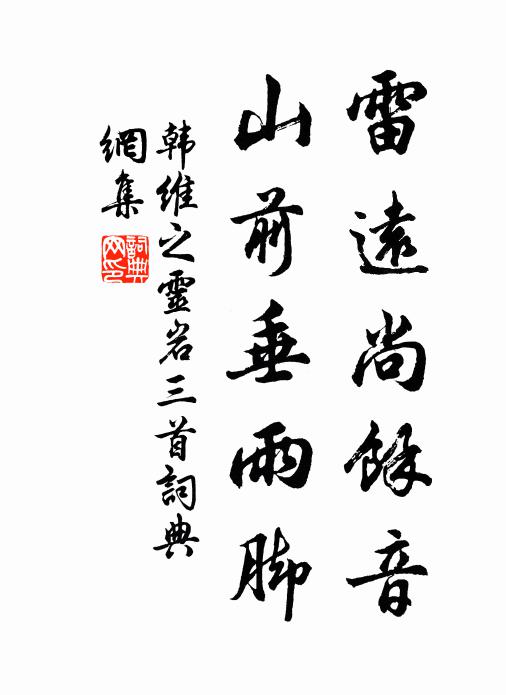 雷遠尚餘音
山前垂雨脚
韩維之靈岩三首詞典
網集
詞典網印